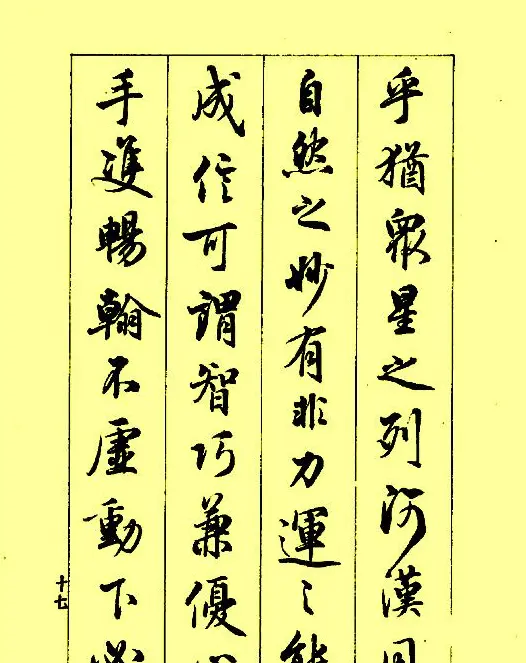 乎猶眾星之列河漢同
自然之妙有非力運之能
成信可謂智巧兼優心
手雙暢翰不虛動下必
十七